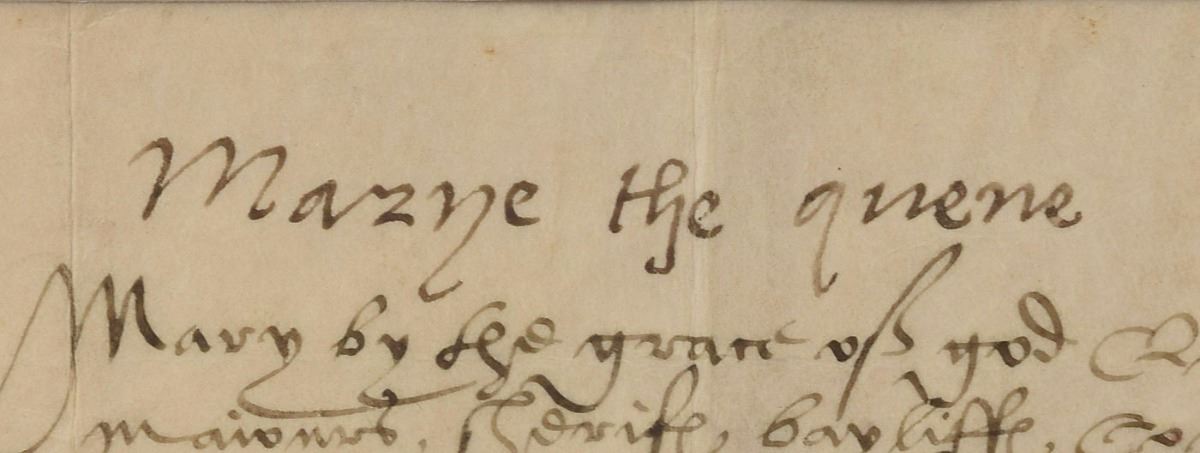 Marye the quene
Mary by the grace of god Q
maiours, sherifs, bayliffs, Co